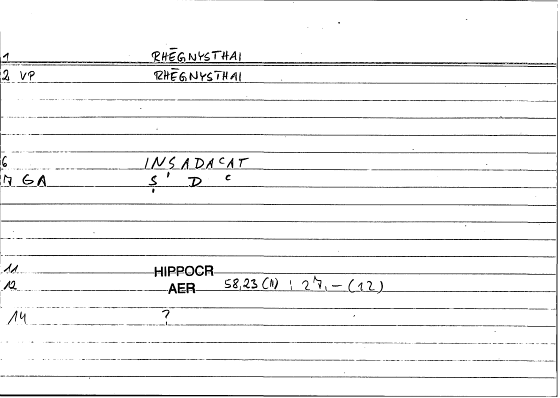 1 RHĒGNYSTHAI
2 VP RHĒGNYSTHAI
6 INSADACAT
7 GA S ' D c
11 HIPPOCR
12 AER 58,23 (11) ; 27.–(12)
14 ?